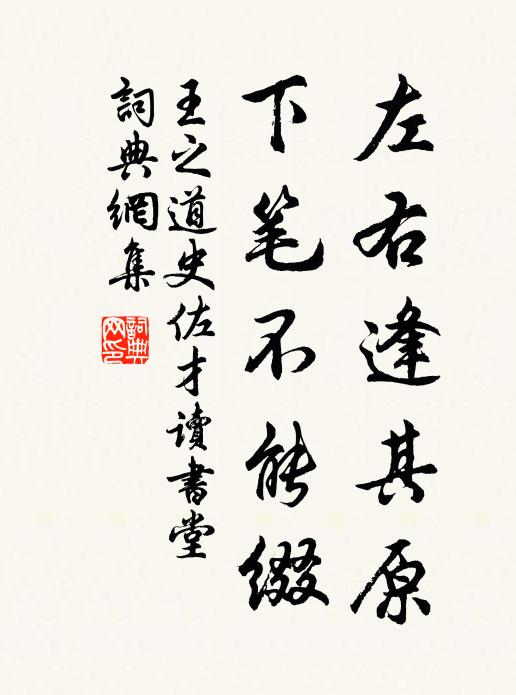 左右逢其原
下笔不能缀
王之道史佐才讀書堂
詞典網集
詞典网印